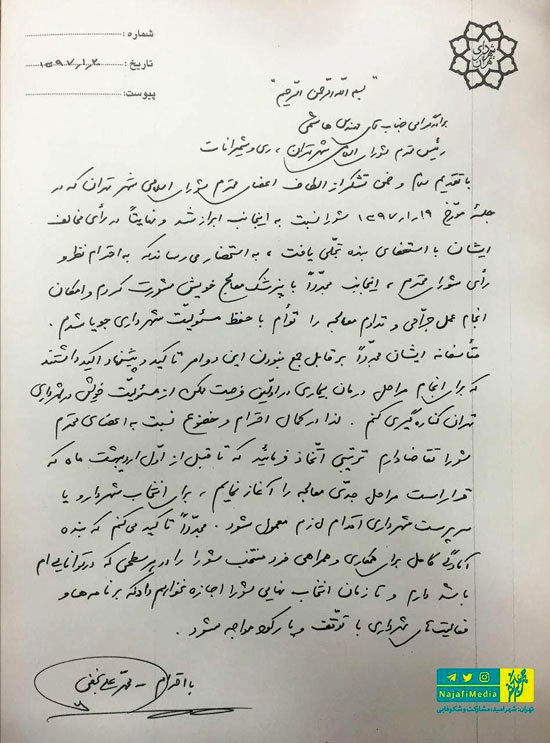 شماره :
تاریخ : ۱۳۹۷/۱/۲۰
پیوست :
شهرداری تهران
"بسم الله الرحمن الرحیم"
برادر گرامی جناب آقای مهندس هاشمی
رئیس محترم شورای اسلامی شهر تهران، ری و شمیرانات
با تقدیم سلام و ضمن تشکر از الطاف اعضای محترم شورای اسلامی شهر تهران که در
جلسهٔ مورّخ ۱۳۹۷/۱/۱۹ شورا نسبت به اینجانب ابراز شد و نهایتاً در رأی مخالف
ایشان با استعفای بنده تجلّی یافت، به استحضار می‌رساند که به احترام نظر و
رأی شورای محترم، اینجانب مجدّداً با پزشک معالج خویش مشورت کردم و امکان
انجام عمل جرّاحی و تداوم معالجه را توأم با حفظ مسئولیّت شهرداری جویا شدم.
متأسفانه ایشان مجدّداً بر قابل جمع نبودن این دو امر تاکید و پیشنهاد اکید داشتند
که برای انجام مراحل درمان بیماری در اوّلین فرصت ممکن از مسئولیّت خویش در شهرداری
تهران کناره گیری کنم. لذا در کمال احترام و خضوع نسبت به اعضای محترم
شورا تقاضا دارم ترتیبی اتّخاذ فرمائید که تا قبل از اوّل اردیبهشت ماه که
قرار است مراحل جدّی معالجه را آغاز نمایم، برای انتخاب شهردار و یا
سرپرست شهرداری اقدام لازم معمول شود. مجدّداً تاکید می‌کنم که بنده
آمادگی کامل برای همکاری و همراهی فرد منتخب شورا را در هر سطحی که در توانایی‌ام
باشد دارم و تا زمان انتخاب نهایی شورا اجازه نخواهم داد که برنامه‌ها و
فعالیت‌های شهرداری با توقّف و یا رکود مواجه شود.
با احترام - محمّد علی نجفی
NajafiMedia
تهران؛ شهر امید، مشارکت و شکوفایی